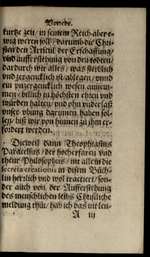 Vorrede.
kurtze zeit / in seinem Reich aber e-
wig weren soll / darumb die Chri-
sten den Articul der Erschaffung /
und aufferstehung von den todten /
dardurch wir alles / was sterblich
und zergenglich ist ablegen / und
ein unzergenglich wesen
billich zu höchsten ehren und
würden halten / und ohn underlaß
unser ubung darinnen haben sol-
len / biß wir von hinnen zu ihm er-
fordert werden.
Dieweil dann Theophrastus
Paracelsus / der hocherfaren und
thewr Philosophus / nit allein die
secreta creationis in disem Büch-
lin herrlich und wol tractiert / son-
der auch von der Aufferstehung
des menschlichen leibs Christliche
meldung thut / hab ich das mit
A iij